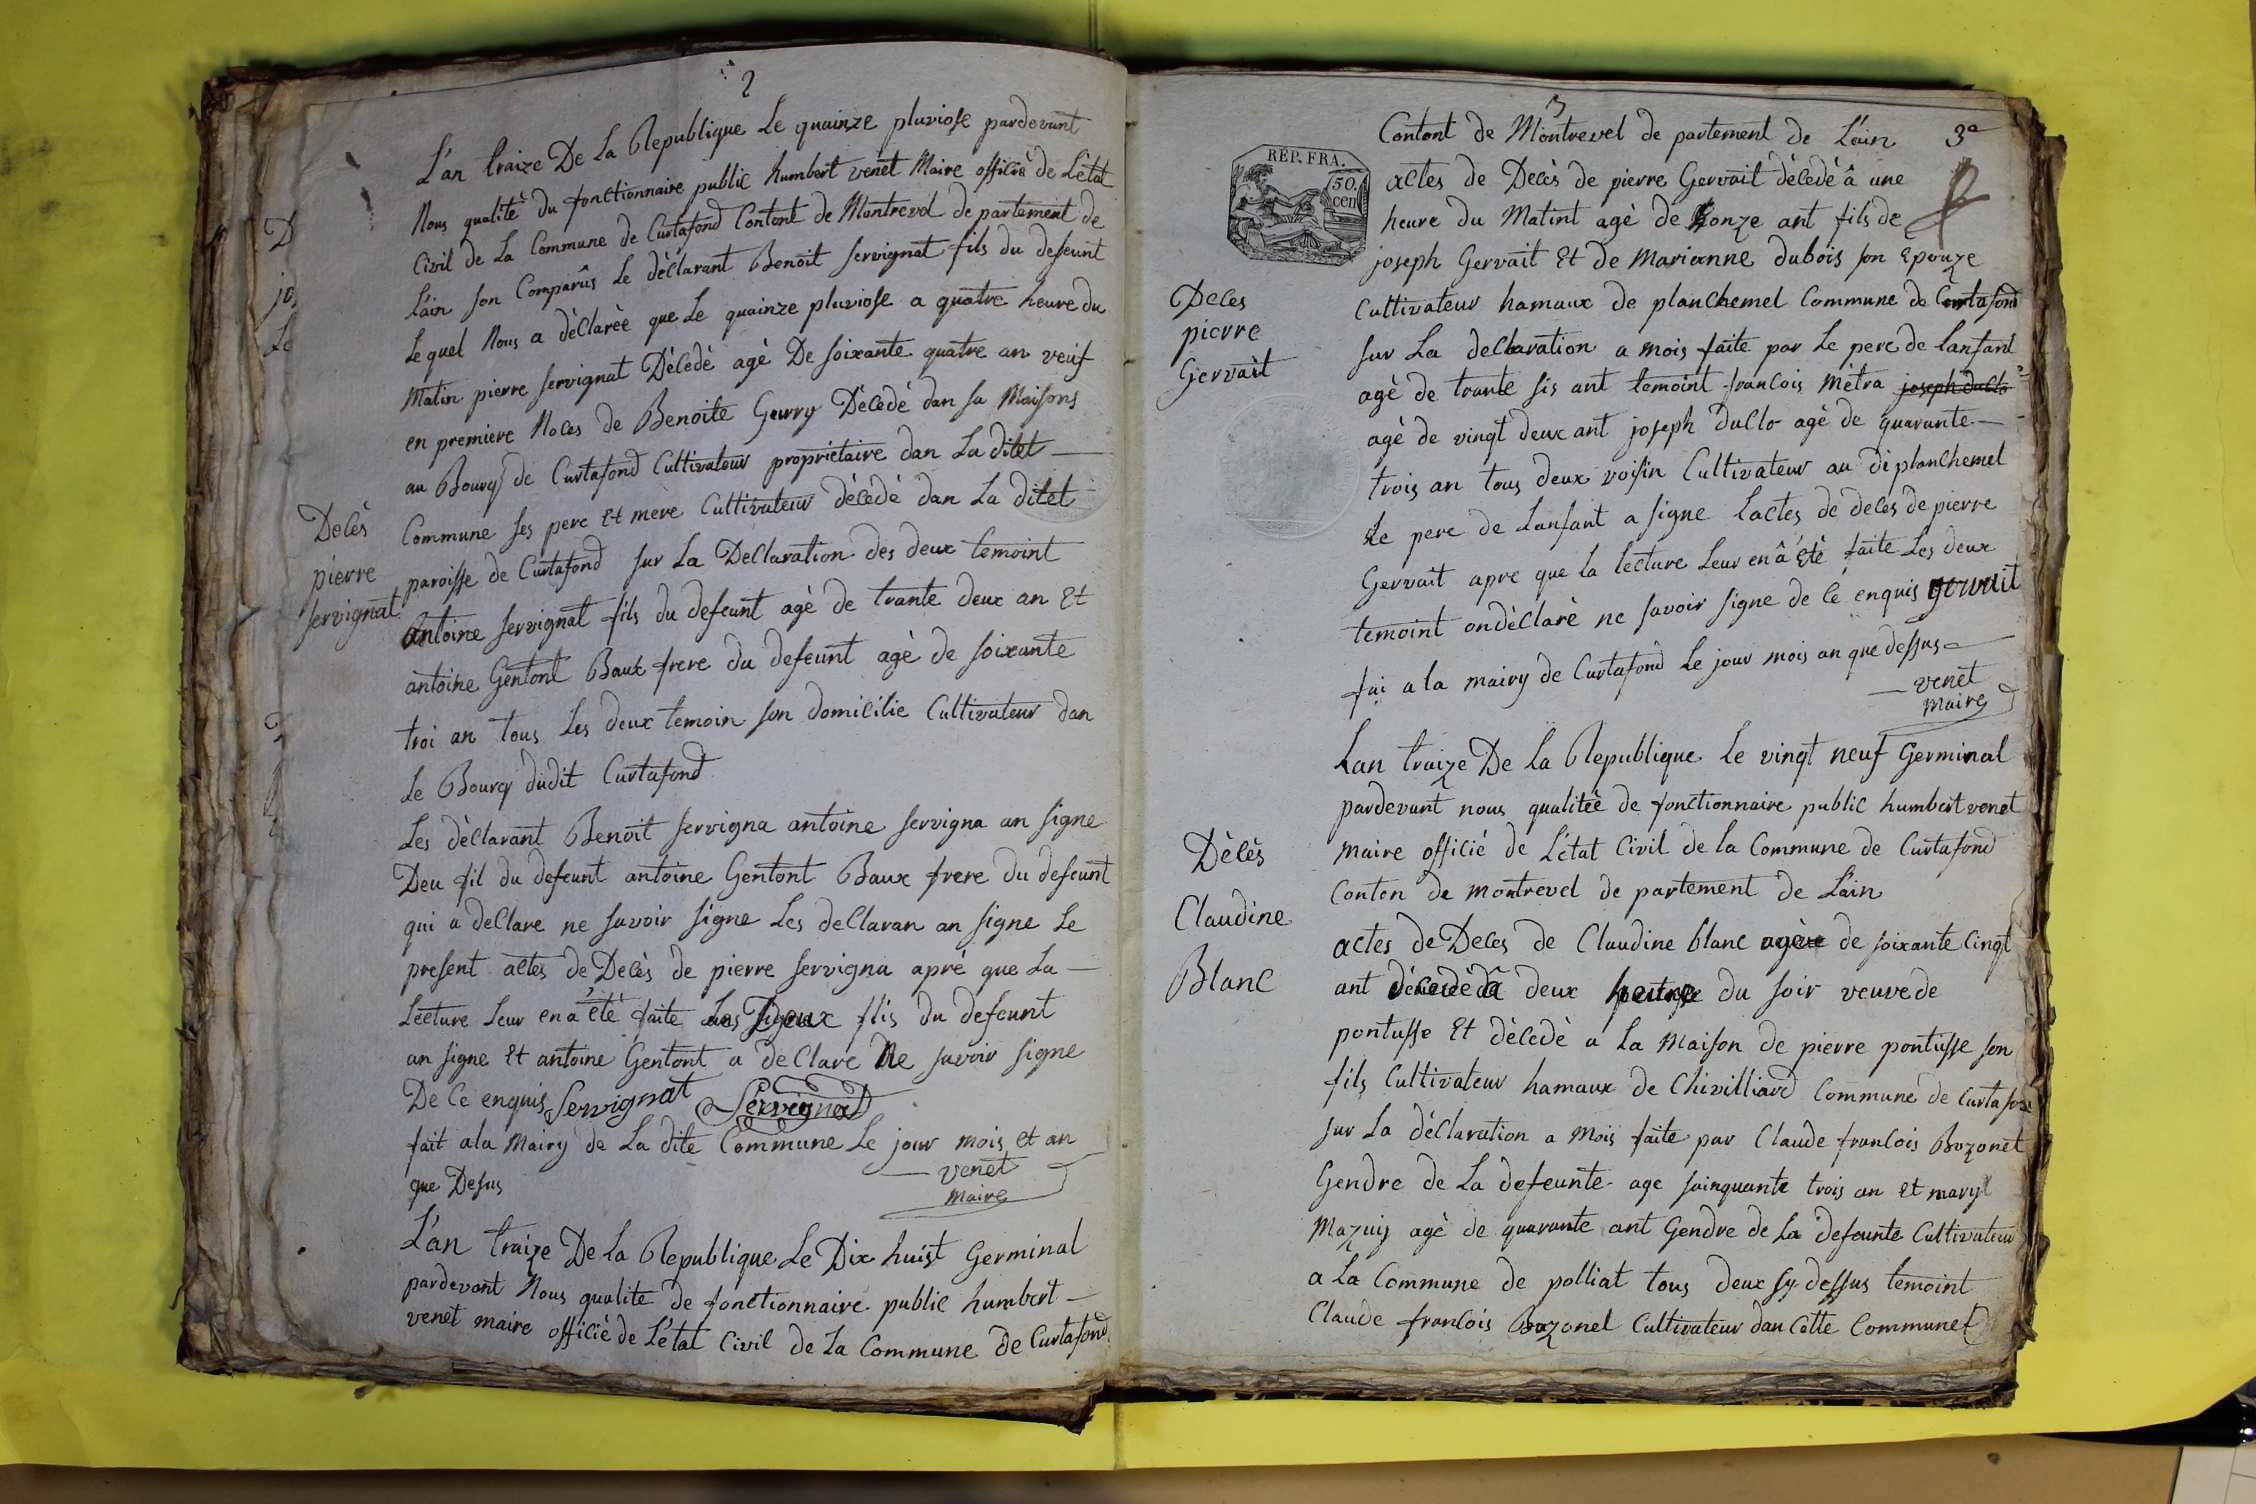 2
L'an traize De La Republique Le quainze pluviose pardevant
Nous qualitè du fonctionnaire public humbert venet Maire officiè de L'ètat
Civil de La Commune de Curtafond Contont de Montrevel de partement de
L'ain son Comparûs Le dèclarant Benoit servignat fils du defeunt
Le quel Nous a dèclarèe que Le quainze pluviose a quatre heure du
Matin pierre servignat Dècedè agè De soixante quatre an veuf
en premiere Noces de Benoite Geurry Dècedè dan sa Maisons
au Bourg de Curtafond Cultivateur propriètaire dan La ditet
Commune ses pere Et mere Cultivateur dècedè dan La ditet
paroisse de Curtafond sur La DeClaration des deux temoint
Antoine servignat fils du defeunt agè de trante deux an Et
antoine Gentont Baux frere du defeunt agè de soixante
troi an tous Les deux temoin son domicilie Cultivateur dan
Le Bourg dudit Curtafond
Decès
pierre
servignat
Les dèclarant Benoit servigna antoine servigna an signe
Deu fil du defeunt antoine Gentont Baux frere du defeunt
qui a deClare ne savoir signe Les deClaran an signe Le
present actes de Decès de pierre servigna aprè que La
Lecture Leur en a ètè faite Les Deux flis du defeunt
an signe Et antoine Gentont a deClare Ne savoir signe
De Ce enquis Servignat Servignat
fait a la Mairy de La dite Commune Le jour mois et an
que Desus
venet
Maire
L'an traize De La Republique Le Dix huist Germinal
pardevant Nous qualite de fonctionnaire public humbert
venet maire officiè de L'ètat Civil de La Commune de Curtafond
3
3e
REP. FRA.
50.
cen
Contont de Montrevel de partement de L'ain
actes de Decès de pierre Gervait dècedè â une
heure du Matint agè de honze ant fils de
joseph Gervait Et de Marianne dubois son Epouze
Cultivateur hamaux de planchemel Commune de Curtafond
sur La deClaration a mois faite par Le pere de Lanfant
agè de trante sis ant temoint francois Mètra joseph duClo
agè de vingt deux ant joseph duClo agè de quarante
trois an tous deux voisin Cultivateur au di planChemel
Le pere de Lanfant a signe Lactes de deces de pierre
Gervait apre que la lecture Leur en â Etè faite Les deux
temoint ondèClarè ne savoir signe de Ce enquis gervait
fai a la mairy de Curtafond Le jour mois an que dessus
venet
Maire
Deces
pierre
Gervait
Lan traize De La Republique Le vingt neuf Germinal
pardevant nous qualiteè de fonctionnaire public humbert venet
maire officié de L'ètat Civil de la Commune de Curtafond
Conton de montrevel de partement de L'ain
actes de Deces de Claudine blanc agèe de soixante Cinqt
ant dècedè â deux heure du soir veuve de
pontusse Et dècedè a La Maison de pierre pontusse son
fils Cultivateur hamaux de Chivilliard Commune de Curtafond
sur La dèClaration a Mois faite par Claude francois Bozonet
Gendre de La defeunte age sainquante trois an Et mary
Mazuy agè de quarante ant Gendre de La defeunte Cultivateur
a La Commune de polliat tous deux sy dessus temoint
Claude francois Bozonet Cultivateur dan Cette Commune
Dècès
Claudine
Blanc